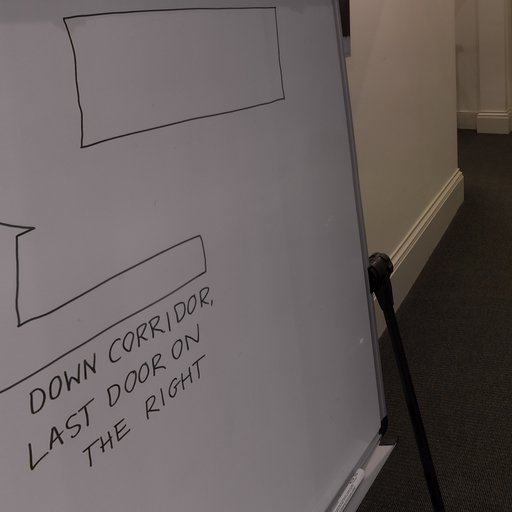 DOWN CORRIDOR,
LAST DOOR ON
THE RIGHT